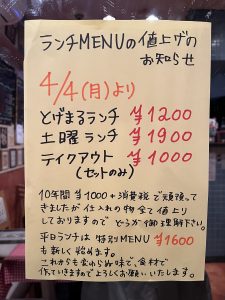 ランチMENUの値上げの
お知らせ
4/4(月)より
とげまるランチ ¥1200
土曜ランチ ¥1900
テイクアウト ¥1000
(セットのみ)
10年間¥1000+消費税で頑張って
きましたが仕入れの物全て値上り
しておりますのでどうか御理解下さい。
平日ランチは特別MENU ¥1600
も新しく始めます。
これからも変わらぬ味で、食材で
作っていきますのでよろしくお願いいたします。